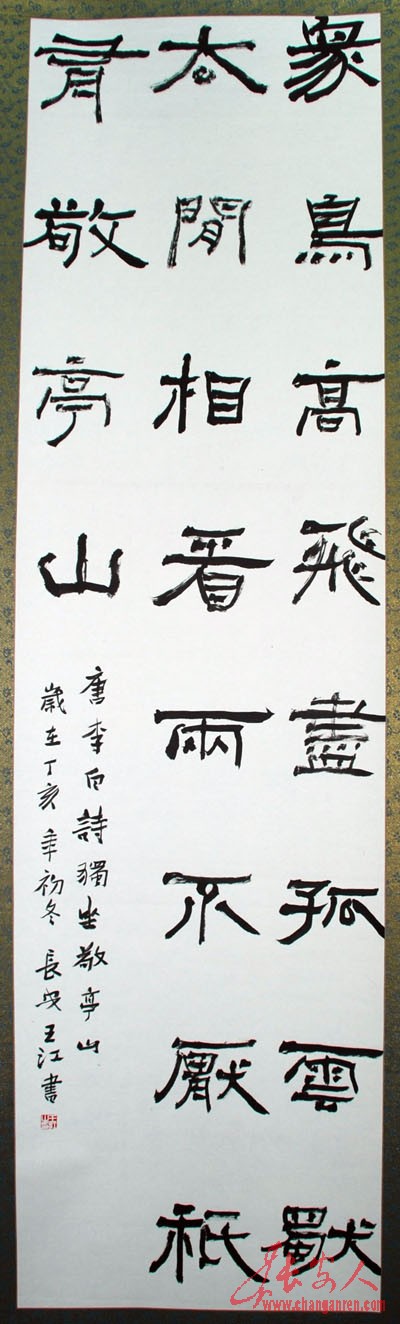 眾鳥高飛盡孤雲獨
太閒相看兩不厭祇
有敬亭山
唐李白詩獨坐敬亭山
歲在丁亥年初冬長安王江書
长安人
www.changanren.com